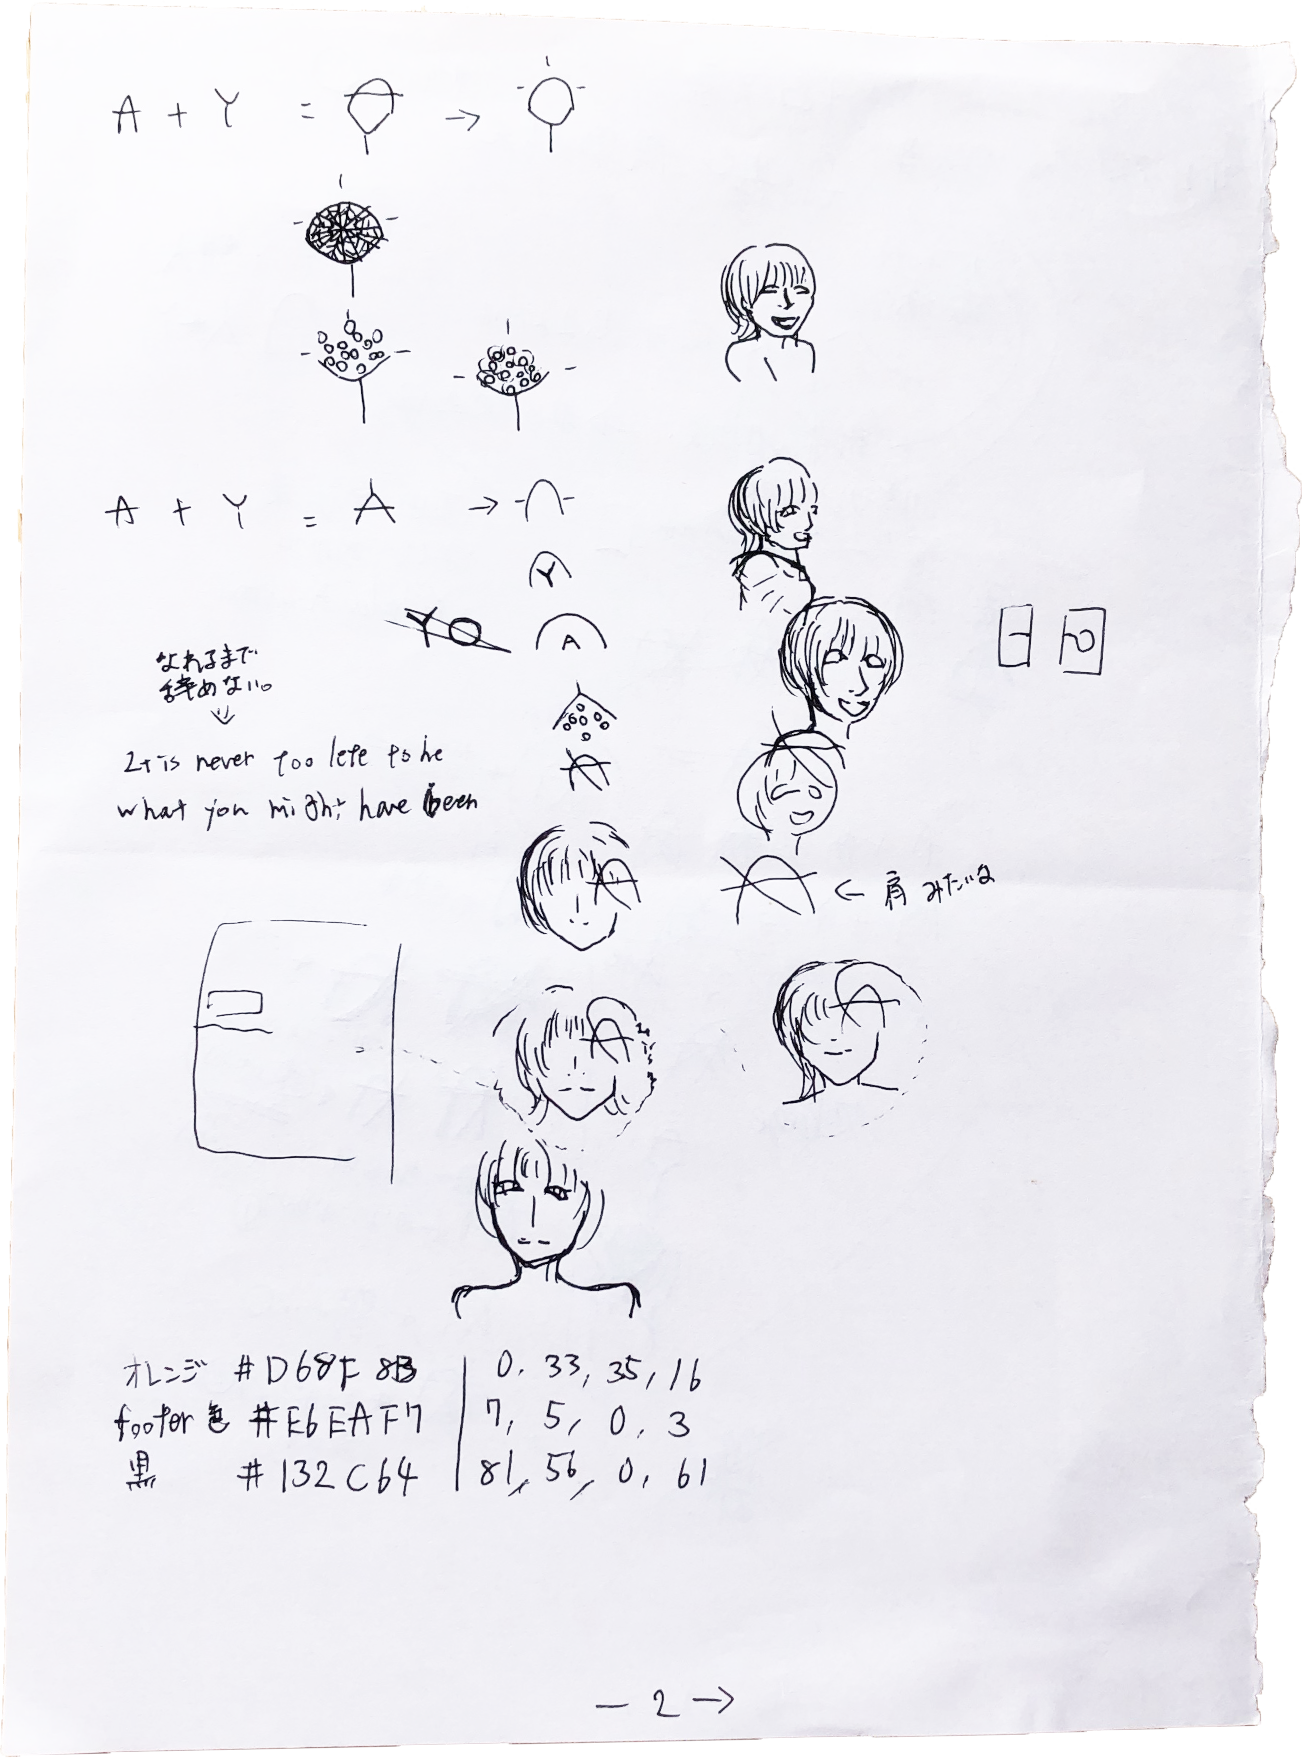 A + Y = →
A + Y = A → ∩
Y
YO
A
なれるまで
辞めない。
It is never too lete to be
what you might have been
A
A
A ← 肩 みたいな
A
A
オレンジ #D68F8B | 0, 33, 35, 16
footer 色 #E6EAF7 | 7, 5, 0, 3
黒 #132C64 | 81, 56, 0, 61
— 2 →